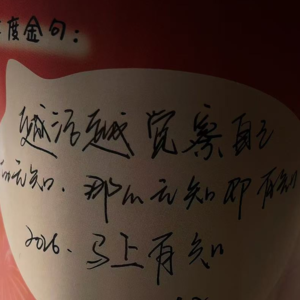 度金句：
越活越觉察自己
无知. 那 无知即有知
2026. 马上有知